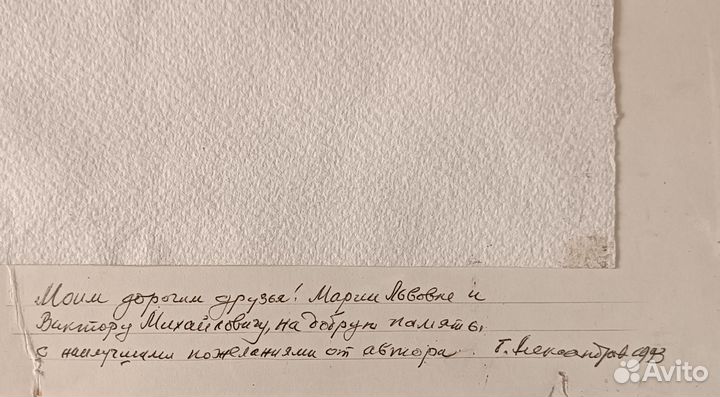 Моим дорогим друзья! Марии Львовне и
Виктору Михайловичу, на добрую память,
с наилучшими пожеланиями от автора. Т. Александров 1993
Avito